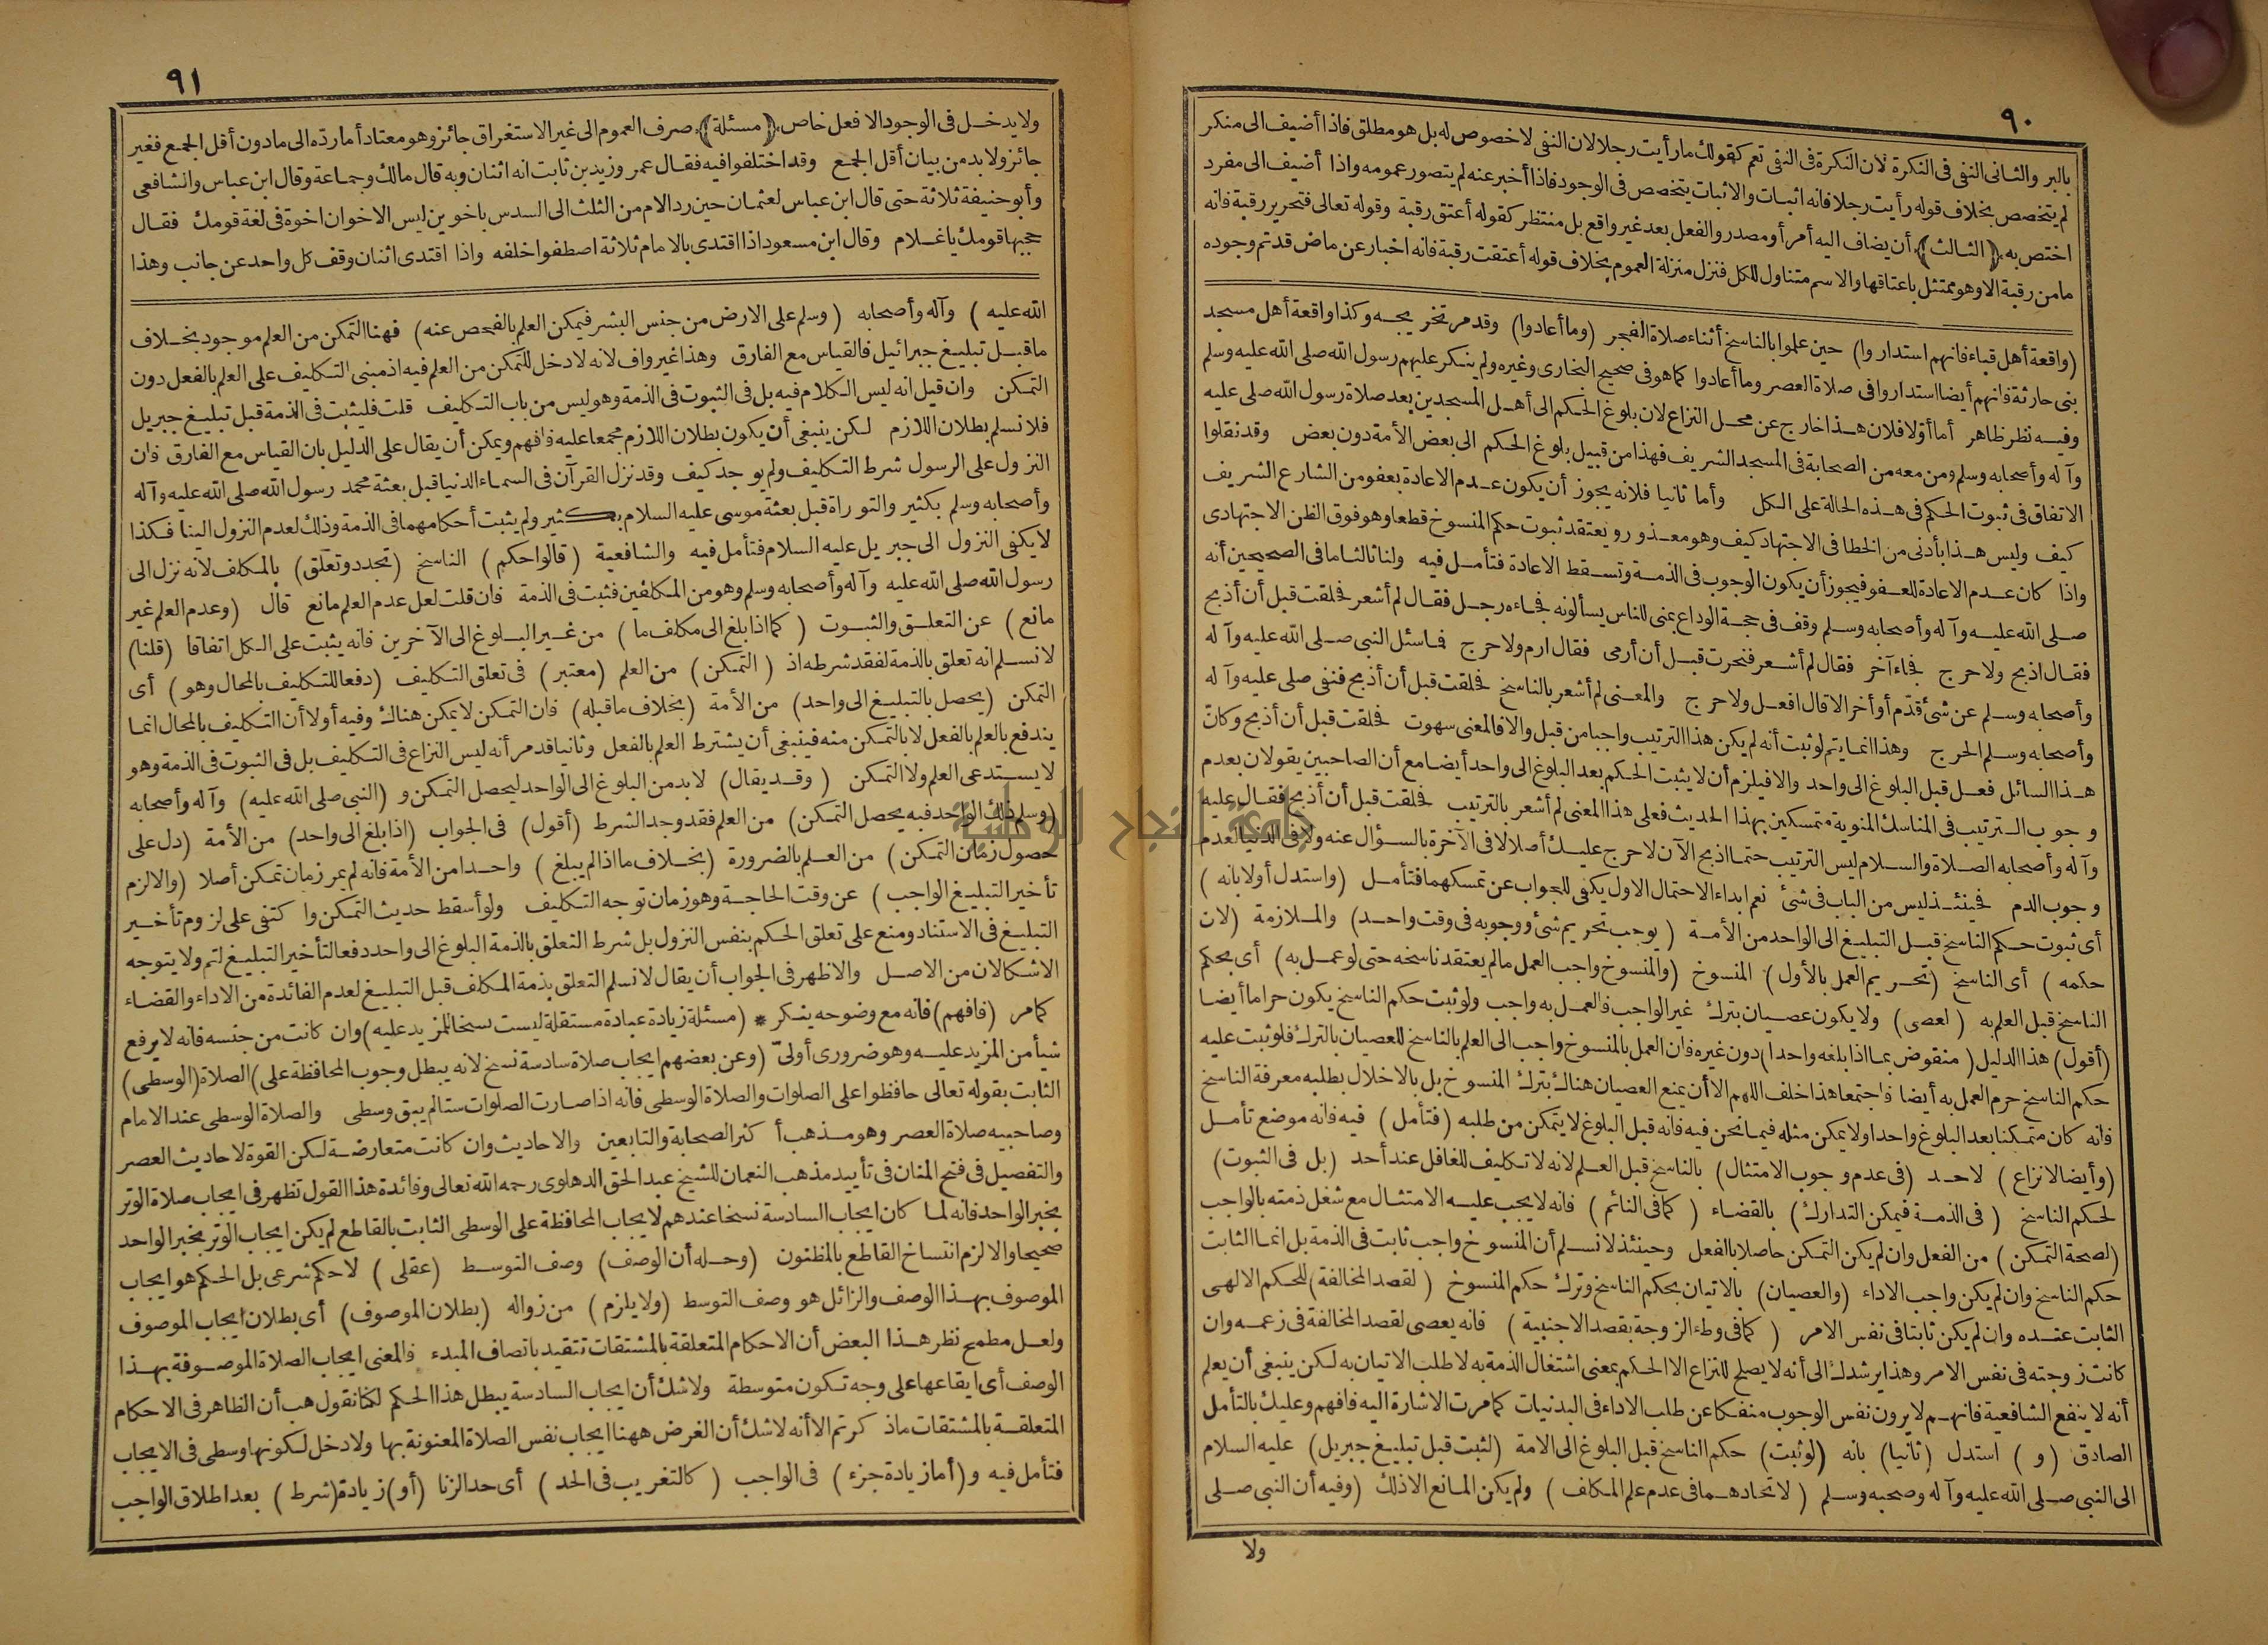 ٩٠
بالبر والثانى النفى فى النكرة لان النكرة فى النفى تعم كقولك ما رأيت رجلا لان النفى لا خصوص له بل هو مطلق فاذا أضيف الى منكر
لم يتخصص بخلاف قوله رأيت رجلا فانه اثبات والاثبات يتخصص فى الوجود فاذا أخبر عنه لم يتصور عمومه واذا أضيف الى مفرد
اختص به ﴿الثالث﴾ أن يضاف اليه أمر أو مصدر والفعل بعد غير واقع بل منتظر كقوله أعتق رقبة وقوله تعالى فتحرير رقبة فانه
ما من رقبة الا وهو ممتثل باعتاقها والاسم متناول للكل فنزل منزلة العموم بخلاف قوله أعتقت رقبة فانه اخبار عن ماض قد تم وجوده
(واقعة أهل قباء فانهم استداروا) حين علموا بالناسخ أثناء صلاة الفجر (وما أعادوا) وقد مر تخريجه وكذا واقعة أهل مسجد
بنى حارثة فانهم أيضا استداروا فى صلاة العصر وما أعادوا كما هو فى صحيح البخارى وغيره ولم ينكر عليهم رسول الله صلى الله عليه وسلم
وفيه نظر ظاهر أما أولا فلان هذا خارج عن محل النزاع لان بلوغ الحكم الى أهل المسجدين بعد صلاة رسول الله صلى عليه
وآله وأصحابه وسلم ومن معه من الصحابة فى المسجد الشريف فهذا من قبيل بلوغ الحكم الى بعض الأمة دون بعض وقد نقلوا
الاتفاق فى ثبوت الحكم فى هذه الحالة على الكل وأما ثانيا فلانه يجوز أن يكون عدم الاعادة بعفو من الشارع الشريف
كيف وليس هذا بأدنى من الخطا فى الاجتهاد كيف وهو معذور و يعتقد ثبوت حكم المنسوخ قطعا وهو فوق الظن الاجتهادى
واذا كان عدم الاعادة للعفو فيجوز أن يكون الوجوب فى الذمة وتسقط الاعادة فتأمل فيه ولنا ثالثا ما فى الصحيحين أنه
صلى الله عليه وآله وأصحابه وسلم وقف فى حجة الوداع بمنى للناس يسألونه فجاءه رجل فقال لم أشعر فحلقت قبل أن أذبح
فقال اذبح ولا حرج فجاء آخر فقال لم أشعر فنحرت قبل أن أرمى فقال ارم ولا حرج فما سئل النبى صلى الله عليه وآله
وأصحابه وسلم عن شئ قدّم أو أخر الا قال افعل ولا حرج والمعنى لم أشعر بالناسخ فحلقت قبل أن أذبح فنفى صلى عليه وآله
وأصحابه وسلم الحرج وهذا انما يتم لو ثبت أنه لم يكن هذا الترتيب واجبا من قبل والا فالمعنى سهوت فحلقت قبل أن أذبح وكان
هذا السائل فعل قبل البلوغ الى واحد والا فيلزم أن لا يثبت الحكم بعد البلوغ الى واحد أيضا مع أن الصاحبين يقولان بعدم
وجوب الترتيب فى المناسك المنوية متمسكين بهذا الحديث فعلى هذا المعنى لم أشعر بالترتيب فحلقت قبل أن أذبح فقال عليه
وآله وأصحابه الصلاة والسلام ليس الترتيب حتما اذبح الآن لا حرج عليك أصلا لا فى الآخرة بالسؤال عنه ولا فى الدنيا لعدم
وجوب الدم فحينئذ ليس من الباب فى شئ نعم ابداء الاحتمال الاول يكفى للجواب عن تمسكهما فتأمل (واستدل أولا بانه)
أى ثبوت حكم الناسخ قبل التبليغ الى الواحد من الأمة (يوجب تحريم شئ ووجوبه فى وقت واحد) والملازمة (لان
حكمه) أى الناسخ (تحريم العمل بالأول) المنسوخ (والمنسوخ واجب العمل ما لم يعتقد ناسخه حتى لو عمل به) أى بحكم
الناسخ قبل العلم به (لعصى) ولا يكون عصيان بترك غير الواجب فالعمل به واجب ولو ثبت حكم الناسخ يكون حراما أيضا
(أقول) هذا الدليل (منقوض بما اذا بلغه واحدا) دون غيره فان العمل بالمنسوخ واجب الى العلم بالناسخ للعصيان بالترك فلو ثبت عليه
حكم الناسخ حرم العمل به أيضا فاجتمعا هذا خلف اللهم الا أن يمنع العصيان هناك بترك المنسوخ بل بالاخلال بطلبه معرفة الناسخ
فانه كان متمكنا بعد البلوغ واحدا ولا يمكن مثله فيما نحن فيه فانه قبل البلوغ لا يتمكن من طلبه (فتأمل) فيه فانه موضع تأمل
(وأيضا لا نزاع) لاحد (فى عدم وجوب الامتثال) بالناسخ قبل العلم لانه لا تكليف للغافل عند أحد (بل فى الثبوت)
لحكم الناسخ (فى الذمة فيمكن التدارك) بالقضاء (كما فى النائم) فانه لا يجب عليه الامتثال مع شغل ذمته بالواجب
(لصحة التمكن) من الفعل وان لم يكن التمكن حاصلا بالفعل وحينئذ لا نسلم أن المنسوخ واجب ثابت فى الذمة بل انما الثابت
حكم الناسخ وان لم يكن واجب الاداء (والعصيان) بالاتيان بحكم الناسخ وترك حكم المنسوخ (لقصد المخالفة) للحكم الالهى
الثابت عنده وان لم يكن ثابتا فى نفس الامر (كما فى وطء الزوجة بقصد الاجنبية) فانه يعصى لقصد المخالفة فى زعمه وان
كانت زوجته فى نفس الامر وهذا يرشدك الى أنه لا يصلح للنزاع الا الحكم بمعنى اشتغال الذمة به لا طلب الاتيان به لكن ينبغى أن يعلم
أنه لا ينفع الشافعية فانهم لا يرون نفس الوجوب منفكا عن طلب الاداء فى البدنيات كما مرت الاشارة اليه فافهم وعليك بالتأمل
الصادق (و) استدل (ثانيا) بانه (لو ثبت) حكم الناسخ قبل البلوغ الى الامة (لثبت قبل تبليغ جبريل) عليه السلام
الى النبى صلى الله عليه وآله وصحبه وسلم (لاتحادهما فى عدم علم المكلف) ولم يكن المانع الا ذلك (وفيه أن النبى صلى
ولا
٩١
ولا يدخل فى الوجود الا فعل خاص ﴿مسئلة﴾ صرف العموم الى غير الاستغراق جائز وهو معتاد أما رده الى ما دون أقل الجمع فغير
جائز ولا بد من بيان أقل الجمع وقد اختلفوا فيه فقال عمر وزيد بن ثابت انه اثنان وبه قال مالك وجماعة وقال ابن عباس والشافعى
وأبو حنيفة ثلاثة حتى قال ابن عباس لعثمان حين رد الام من الثلث الى السدس باخوين ليس الاخوان اخوة فى لغة قومك فقال
حجبها قومك يا غلام وقال ابن مسعود اذا اقتدى بالامام ثلاثة اصطفوا خلفه واذا اقتدى اثنان وقف كل واحد عن جانب وهذا
الله عليه) وآله وأصحابه (وسلم على الارض من جنس البشر فيمكن العلم بالفحص عنه) فهنا التمكن من العلم موجود بخلاف
ما قبل تبليغ جبرائيل فالقياس مع الفارق وهذا غير واف لانه لا دخل للتمكن من العلم فيه اذ مبنى التكليف على العلم بالفعل دون
التمكن وان قيل انه ليس الكلام فيه بل فى الثبوت فى الذمة وهو ليس من باب التكليف قلت فليثبت فى الذمة قبل تبليغ جبريل
فلا نسلم بطلان اللازم لكن ينبغى أن يكون بطلان اللازم مجمعا عليه فافهم ويمكن أن يقال على الدليل بان القياس مع الفارق فان
النزول على الرسول شرط التكليف ولم يوجد كيف وقد نزل القرآن فى السماء الدنيا قبل بعثة محمد رسول الله صلى الله عليه وآله
وأصحابه وسلم بكثير والتوراة قبل بعثة موسى عليه السلام بكثير ولم يثبت أحكامهما فى الذمة وذلك لعدم النزول الينا فكذا
لا يكفى النزول الى جبريل عليه السلام فتأمل فيه والشافعية (قالوا حكم) الناسخ (تجدد وتعلق) بالمكلف لانه نزل الى
رسول الله صلى الله عليه وآله وأصحابه وسلم وهو من المكلفين فثبت فى الذمة فان قلت لعل عدم العلم مانع قال (وعدم العلم غير
مانع) عن التعلق والثبوت (كما اذا بلغ الى مكلف ما) من غير البلوغ الى الآخرين فانه يثبت على الكل اتفاقا (قلنا)
لا نسلم انه تعلق بالذمة لفقد شرطه اذ (التمكن) من العلم (معتبر) فى تعلق التكليف (دفعا للتكليف بالمحال وهو) أى
التمكن (يحصل بالتبليغ الى واحد) من الأمة (بخلاف ما قبله) فان التمكن لا يمكن هناك وفيه أولا أن التكليف بالمحال انما
يندفع بالعلم بالفعل لا بالتمكن منه فينبغى أن يشترط العلم بالفعل وثانيا قد مر أنه ليس النزاع فى التكليف بل فى الثبوت فى الذمة وهو
لا يستدعى العلم ولا التمكن (وقد يقال) لا بد من البلوغ الى الواحد ليحصل التمكن و (النبى صلى الله عليه) وآله وأصحابه
(وسلم ذلك الواحد فبه يحصل التمكن) من العلم فقد وجد الشرط (أقول) فى الجواب (اذا بلغ الى واحد) من الأمة (دل على
حصول زمان التمكن) من العلم بالضرورة (بخلاف ما اذا لم يبلغ) واحدا من الأمة فانه لم يمر زمان تمكن أصلا (والا لزم
تأخير التبليغ الواجب) عن وقت الحاجة وهو زمان توجه التكليف ولو أسقط حديث التمكن واكتفى على لزوم تأخير
التبليغ فى الاستناد ومنع على تعلق الحكم بنفس النزول بل شرط التعلق بالذمة البلوغ الى واحد دفعا لتأخير التبليغ لتم ولا يتوجه
الاشكالان من الاصل والاظهر فى الجواب أن يقال لا نسلم التعلق بذمة المكلف قبل التبليغ لعدم الفائدة من الاداء والقضاء
كما مر (فافهم) فانه مع وضوحه ينكر * (مسئلة زيادة عبادة مستقلة ليست نسخا للمزيد عليه) وان كانت من جنسه فانه لا يرفع
شيأ من المزيد عليه وهو ضرورى أولىّ (وعن بعضهم ايجاب صلاة سادسة نسخ لانه يبطل وجوب المحافظة على) الصلاة (الوسطى)
الثابت بقوله تعالى حافظوا على الصلوات والصلاة الوسطى فانه اذا صارت الصلوات ستا لم يبق وسطى والصلاة الوسطى عند الامام
وصاحبيه صلاة العصر وهو مذهب أكثر الصحابة والتابعين والاحاديث وان كانت متعارضة لكن القوة لاحاديث العصر
والتفصيل فى فتح المنان فى تأييد مذهب النعمان للشيخ عبد الحق الدهلوى رحمه الله تعالى وفائدة هذا القول تظهر فى ايجاب صلاة الوتر
بخبر الواحد فانه لما كان ايجاب السادسة نسخا عندهم لايجاب المحافظة على الوسطى الثابت بالقاطع لم يكن ايجاب الوتر بخبر الواحد
صحيحا والا لزم انتساخ القاطع بالمظنون (وحله أن الوصف) وصف التوسط (عقلى) لا حكم شرعى بل الحكم هو ايجاب
الموصوف بهذا الوصف والزائل هو وصف التوسط (ولا يلزم) من زواله (بطلان الموصوف) أى بطلان ايجاب الموصوف
ولعل مطمح نظر هذا البعض أن الاحكام المتعلقة بالمشتقات تتقيد باتصاف المبدء فالمعنى ايجاب الصلاة الموصوفة بهذا
الوصف أى ايقاعها على وجه تكون متوسطة ولا شك أن ايجاب السادسة يبطل هذا الحكم لكنا نقول هب أن الظاهر فى الاحكام
المتعلقة بالمشتقات ما ذكرتم الا أنه لا شك أن الغرض ههنا ايجاب نفس الصلاة المعنونة بها ولا دخل لكونها وسطى فى الايجاب
فتأمل فيه و (أما زيادة جزء) فى الواجب (كالتغريب فى الحد) أى حد الزنا (أو) زيادة (شرط) بعد اطلاق الواجب
جامعة النجاح الوطنية